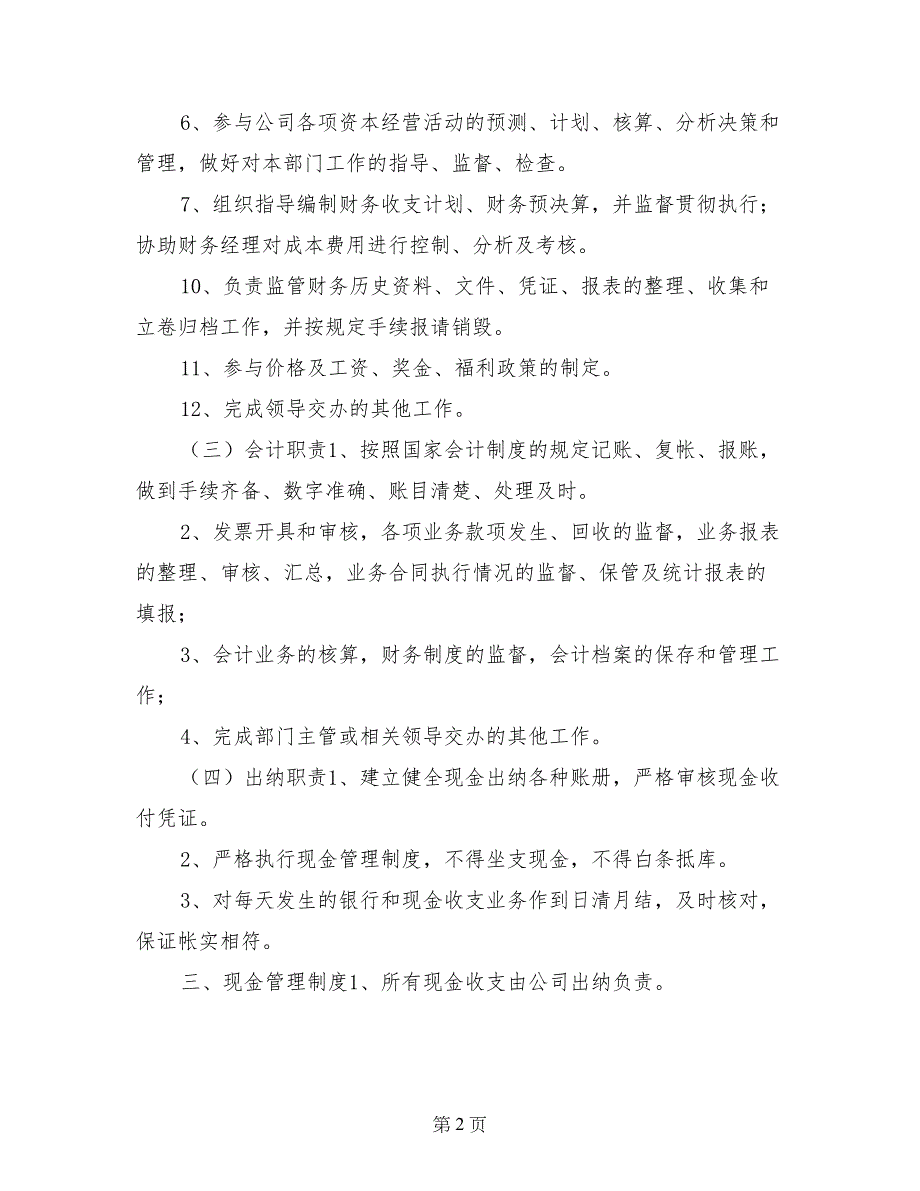 6、参与公司各项资本经营活动的预测、计划、核算、分析决策和
管理，做好对本部门工作的指导、监督、检查。
7、组织指导编制财务收支计划、财务预决算，并监督贯彻执行；
协助财务经理对成本费用进行控制、分析及考核。
10、负责监管财务历史资料、文件、凭证、报表的整理、收集和
立卷归档工作，并按规定手续报请销毁。
11、参与价格及工资、奖金、福利政策的制定。
12、完成领导交办的其他工作。
（三）会计职责1、按照国家会计制度的规定记账、复帐、报账，
做到手续齐备、数字准确、账目清楚、处理及时。
2、发票开具和审核，各项业务款项发生、回收的监督，业务报表
的整理、审核、汇总，业务合同执行情况的监督、保管及统计报表的
填报；
3、会计业务的核算，财务制度的监督，会计档案的保存和管理工
作；
4、完成部门主管或相关领导交办的其他工作。
（四）出纳职责1、建立健全现金出纳各种账册，严格审核现金收
付凭证。
2、严格执行现金管理制度，不得坐支现金，不得白条抵库。
3、对每天发生的银行和现金收支业务作到日清月结，及时核对，
保证帐实相符。
三、现金管理制度1、所有现金收支由公司出纳负责。
第 2 页